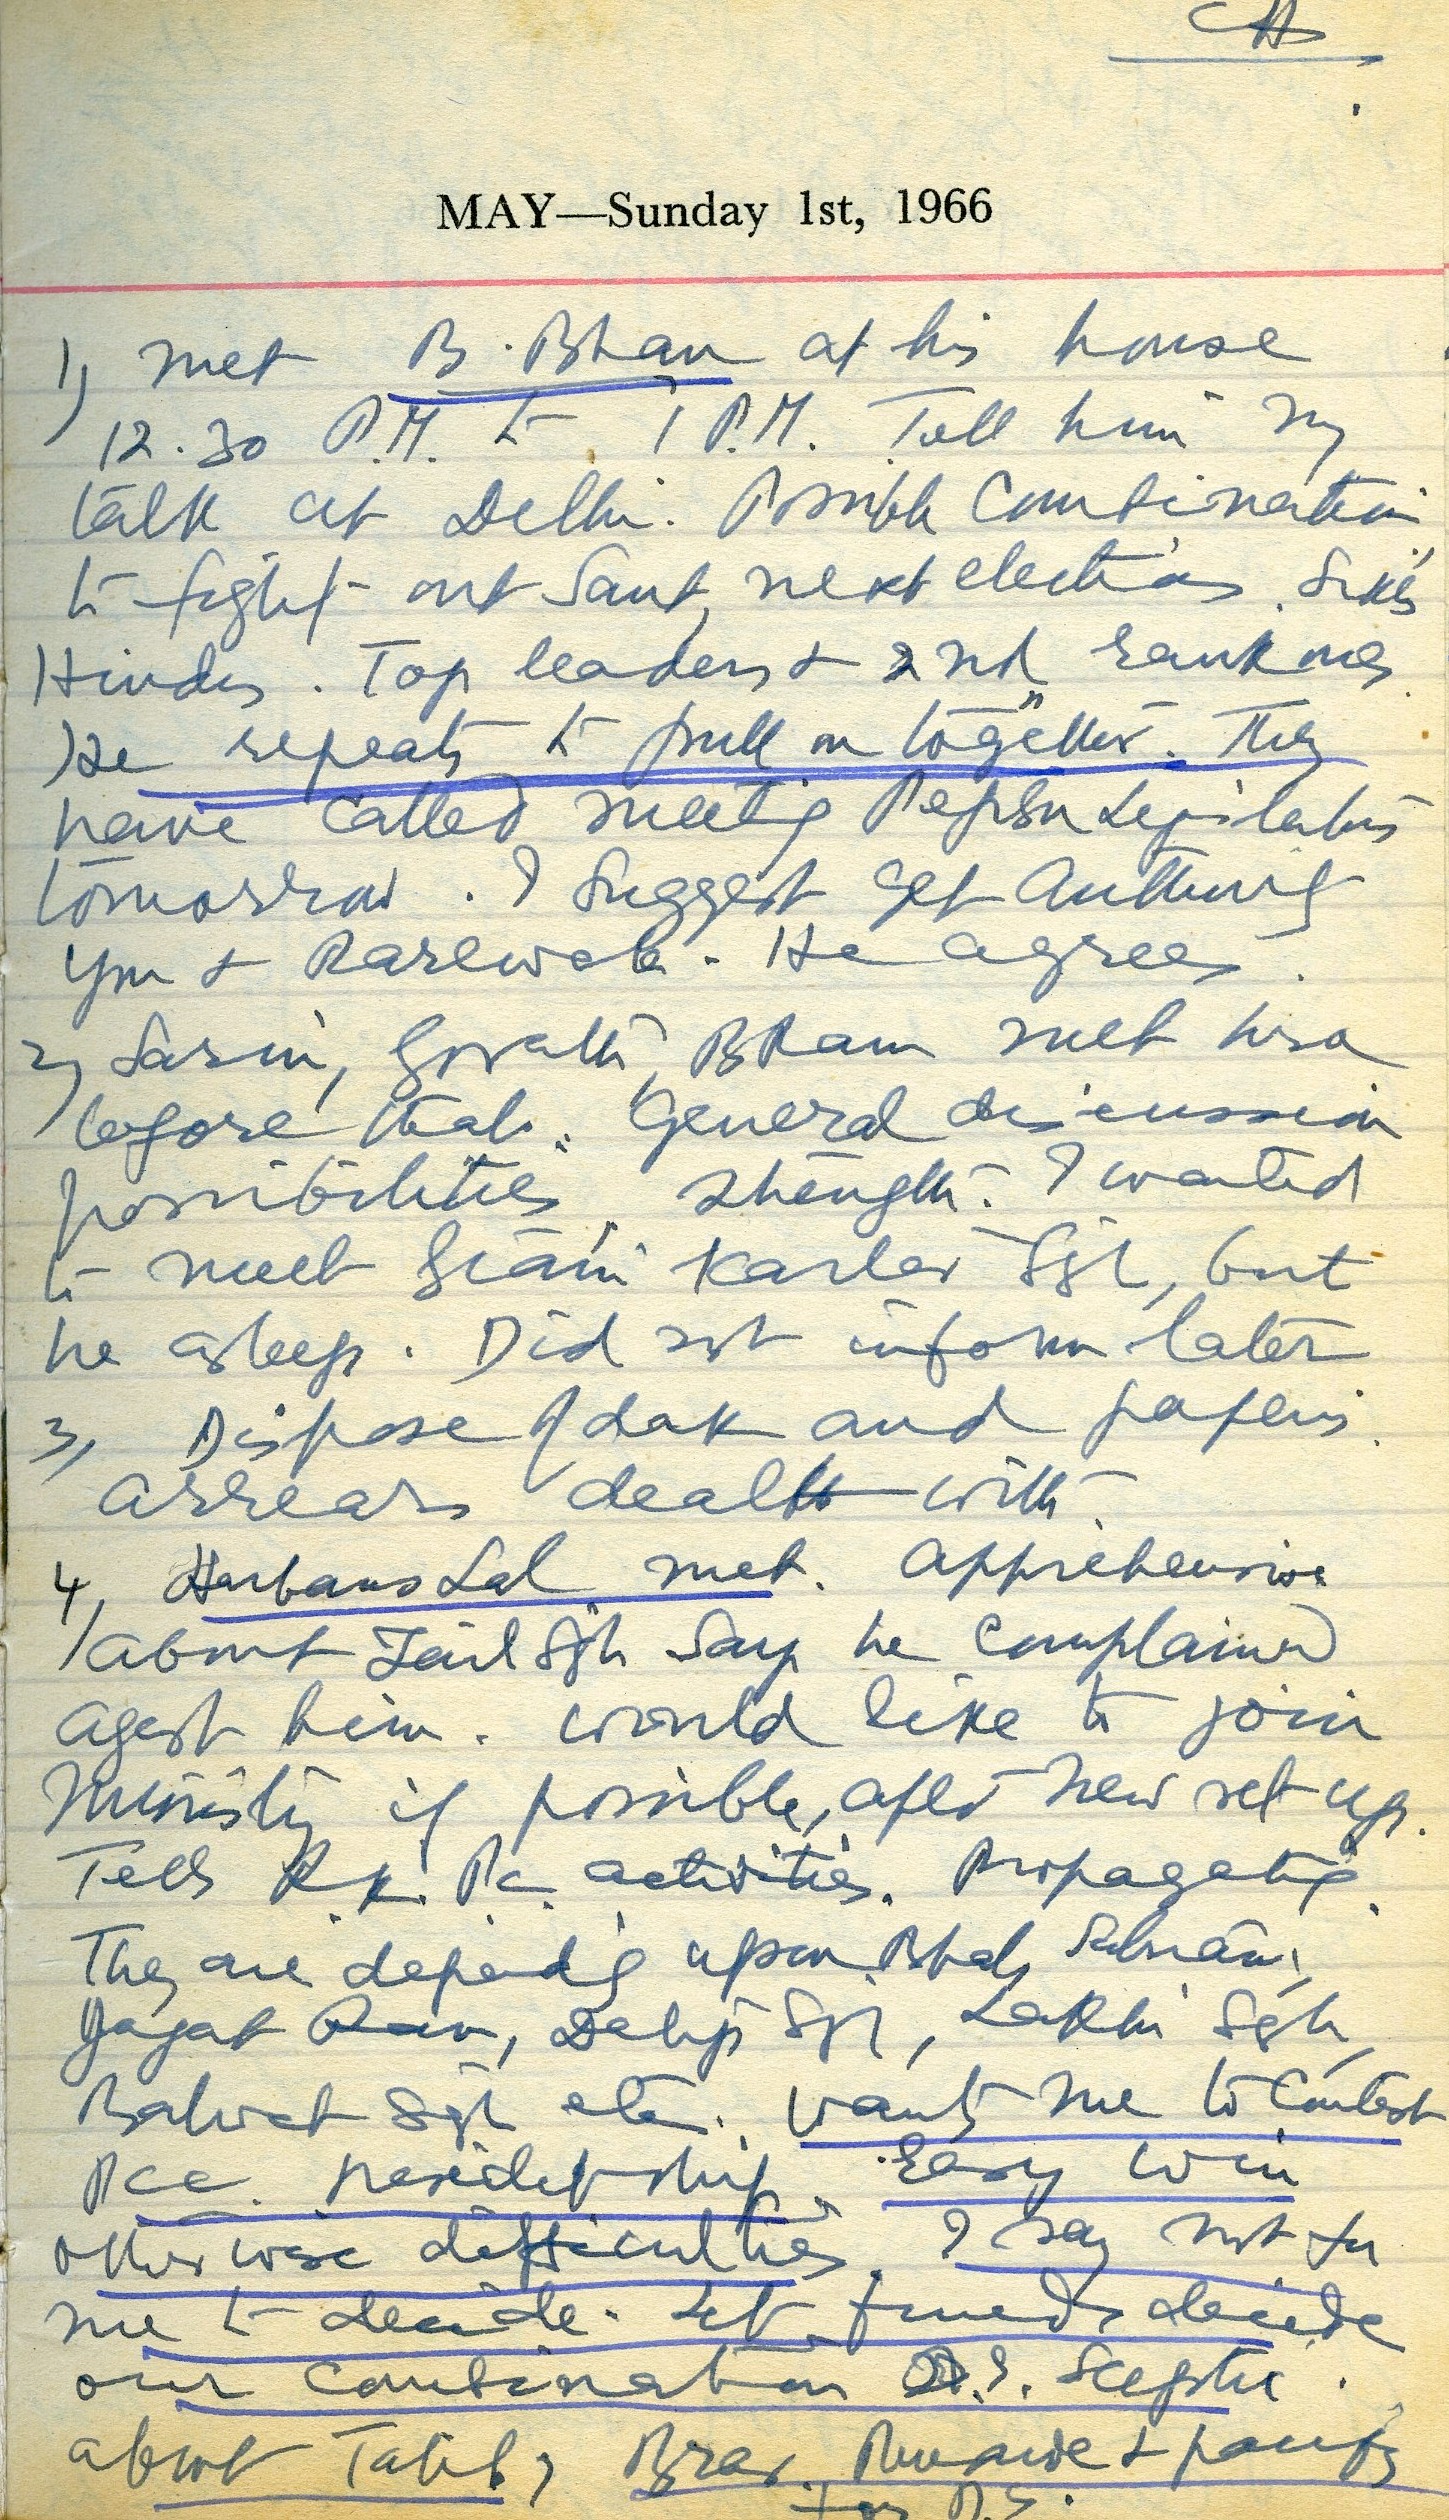 MAY—Sunday 1st, 1966
1) Met B. Bhan at his house
12.30 P.M. to 1 P.M. Tell him my
talk at Delhi. Possible combination
to fight out Sant, next elections. Sikhs
Hindus. Top leaders & 2nd rank ones.
He repeats to pull on together. They
have called meeting Pepsu Legislators
tomorrow. I suggest get Authority
you & Rarewala. He agrees.
2) Sarin, Bhan meet
before that. General discussion
possibilities, strength. I wanted
to meet Giani Kartar Sgh, but
he asleep. Did not inform later
3, Dispose of dak and papers.
Arrears dealt with.
4, Harbans Lal met. Apprehensive
about Zail Sgh say he complained
agest him. Would like to join
Ministry if possible, after new set up.
Tells R.K. Pc. activities. Propagating.
They are dependig upon
Jagat Ram, Dalip Sgh, Lakhi Sgh,
Balwat Sgh etc. Wants me to contest
Pcc. presidetship. Easy win
otherwise difficulties. I say not for
me to decide. Let friends decide
our combination Sceptic.
about &
for